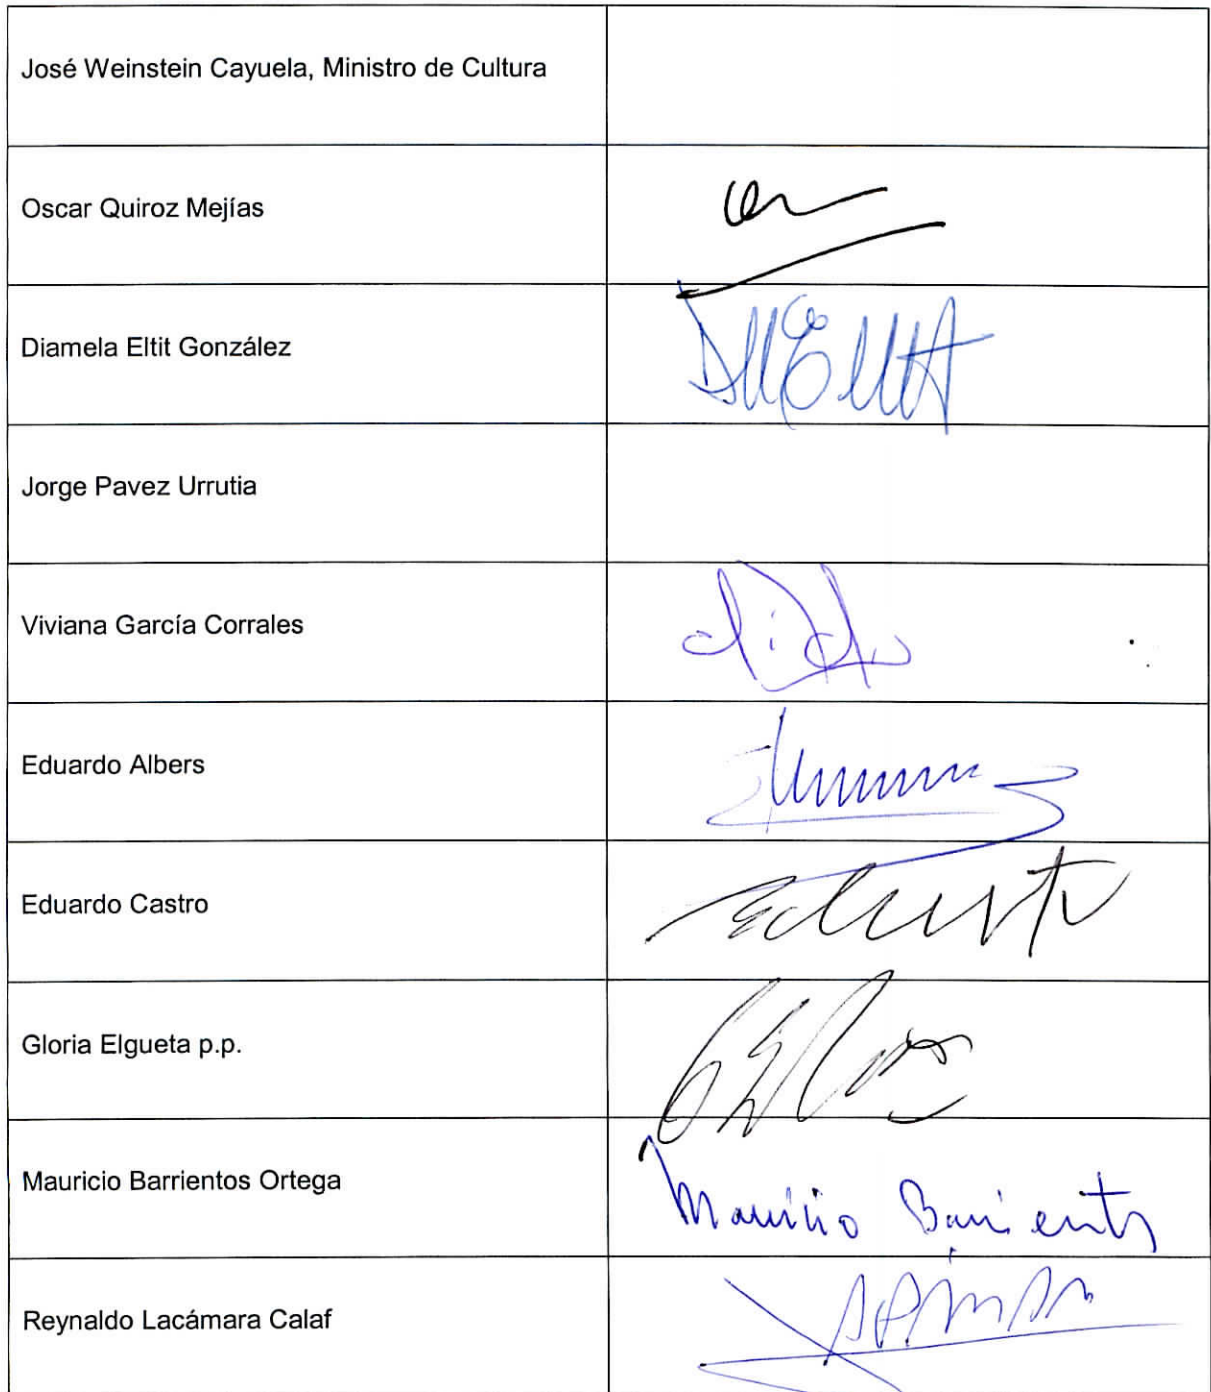 José Weinstein Cayuela, Ministro de Cultura
Oscar Quiroz Mejías
Diamela Eltit González
Jorge Pavez Urrutia
Viviana García Corrales
Eduardo Albers
Eduardo Castro
Gloria Elgueta p.p.
Mauricio Barrientos Ortega
Mauricio Barrientos
Reynaldo Lacámara Calaf